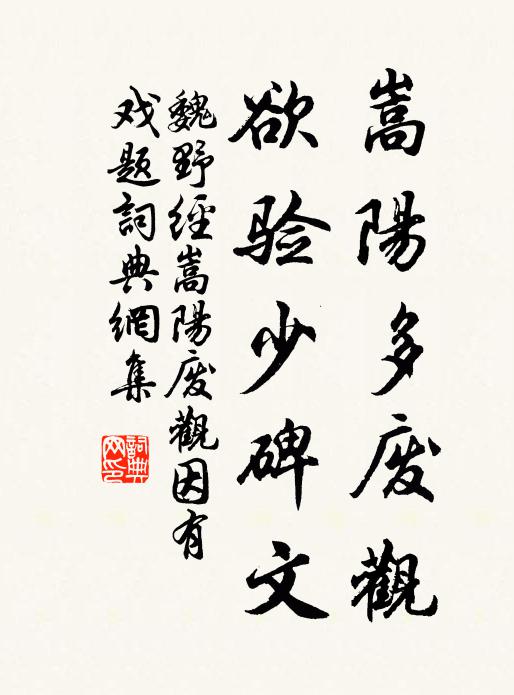 嵩陽多废觀
欲验少碑文
魏野經嵩陽废觀因有
戏题詞典網集
詞典网印